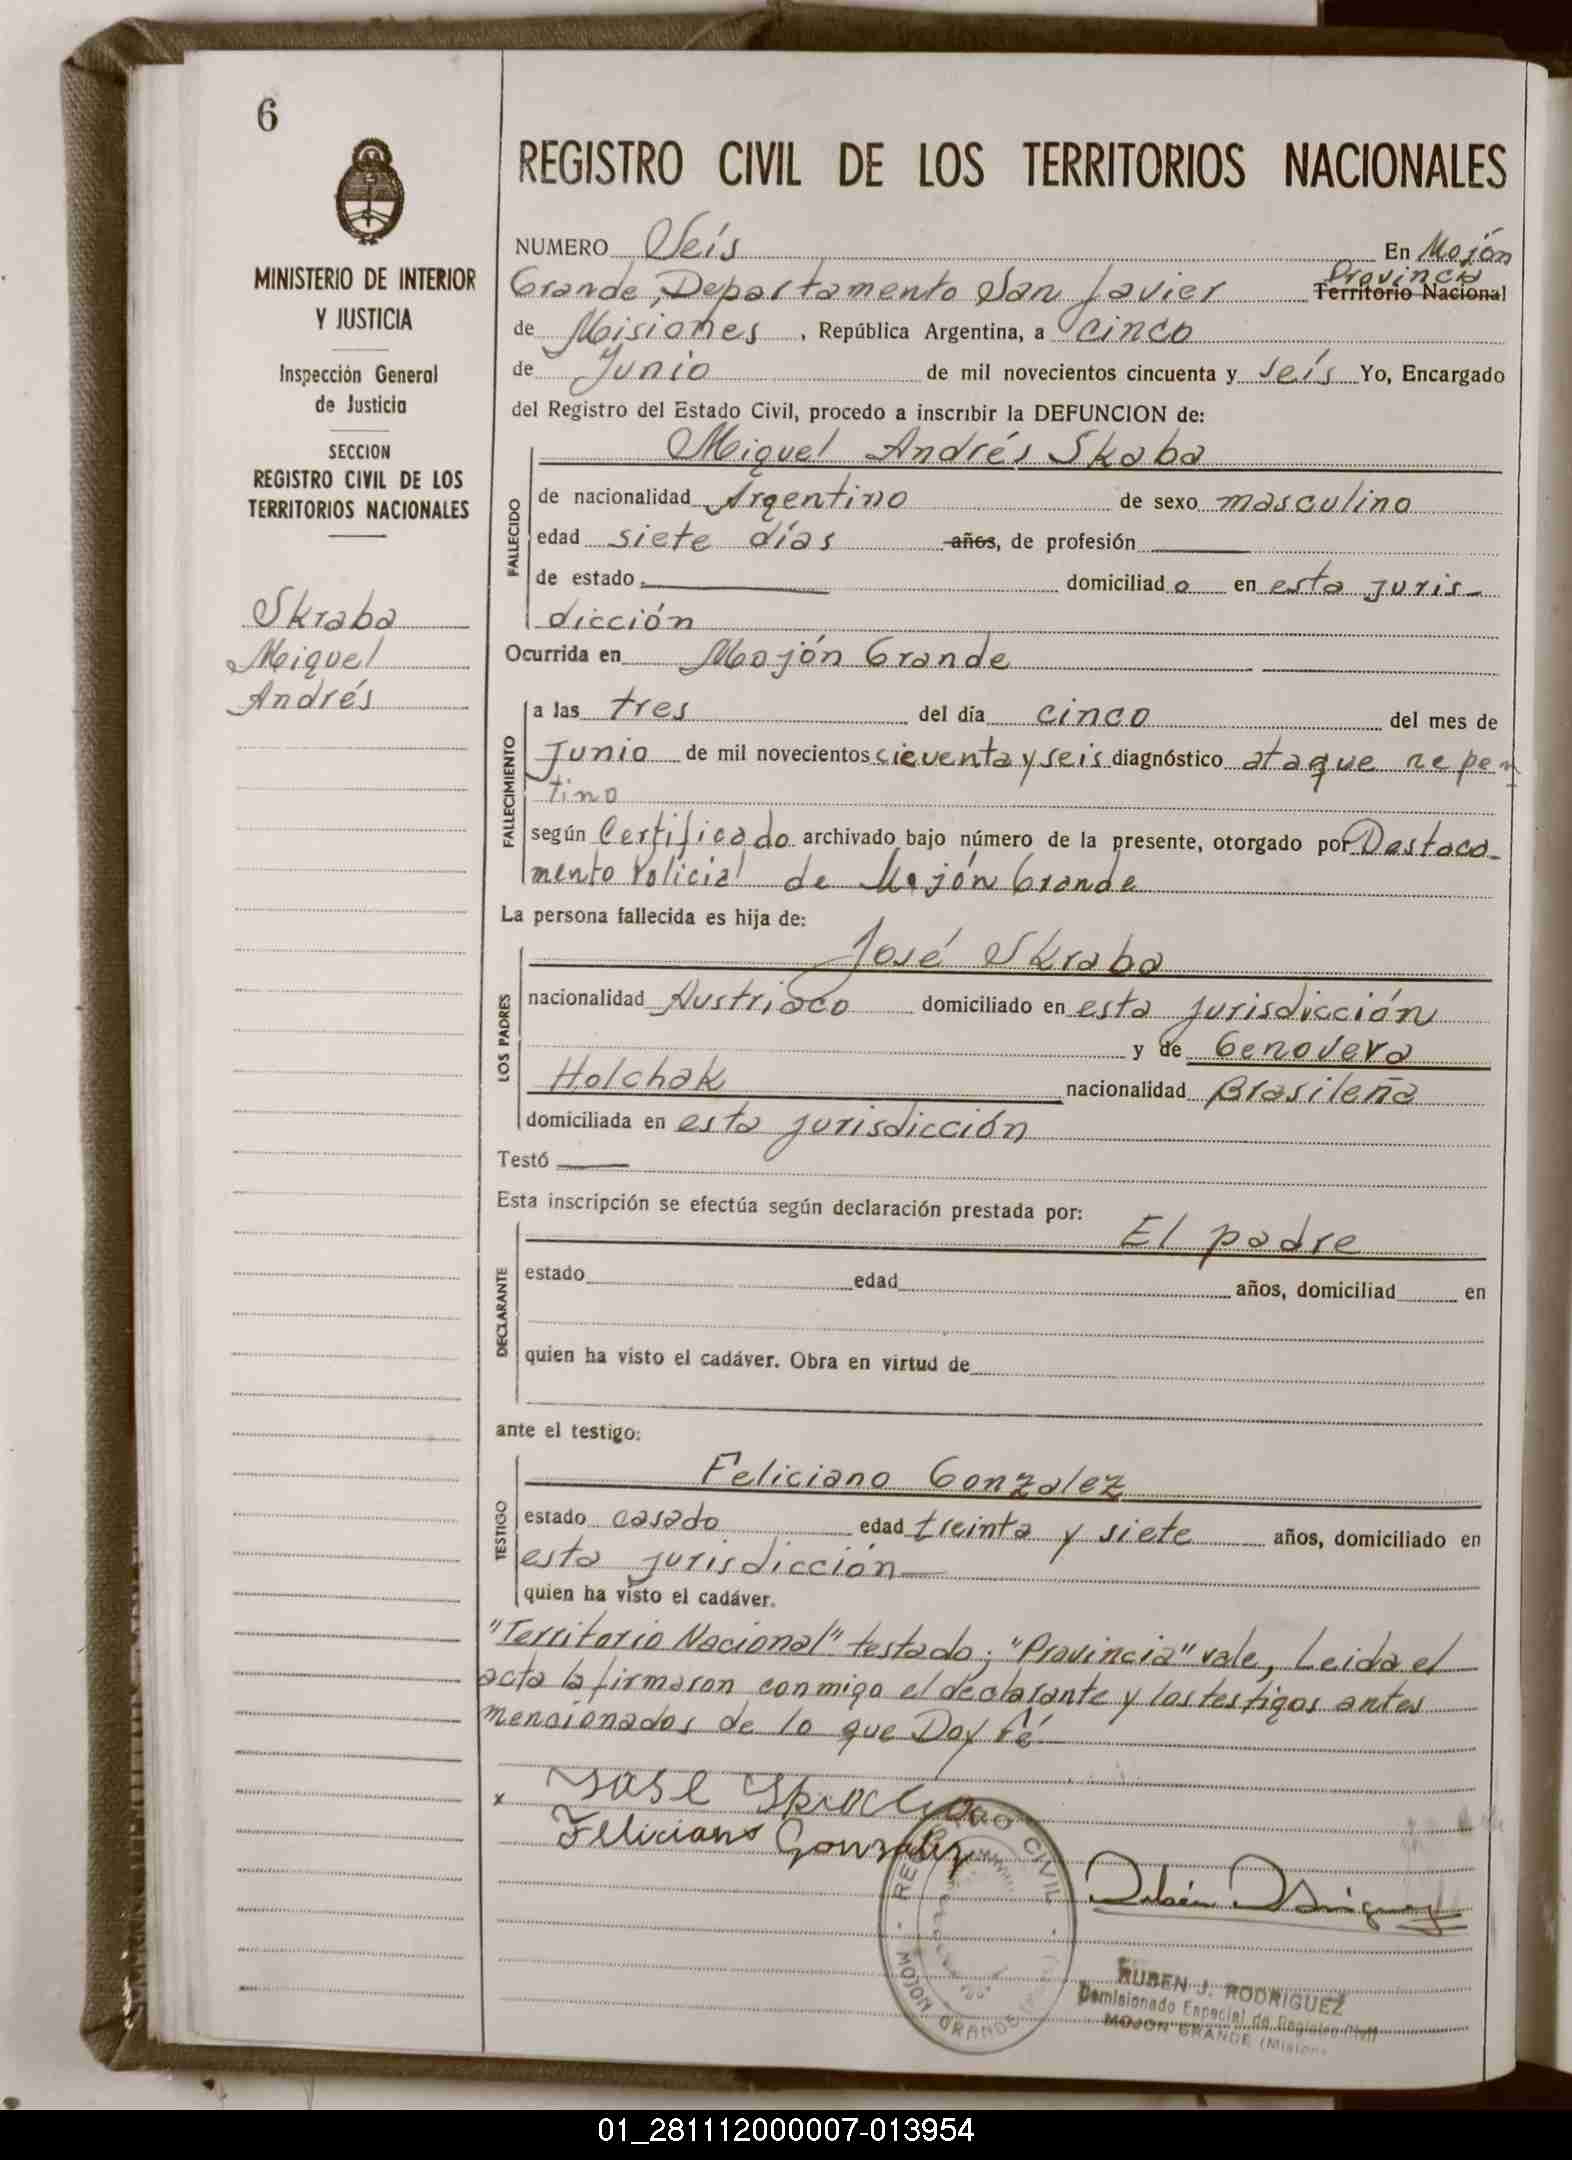 6
MINISTERIO DE INTERIOR
Y JUSTICIA
Inspección General
de Justicia
SECCION
REGISTRO CIVIL DE LOS
TERRITORIOS NACIONALES
Skraba
Miguel
Andrés
REGISTRO CIVIL DE LOS TERRITORIOS NACIONALES
NUMERO Seís En Mojón
Provincia
Grande, Departamento San Javier Territorio Nacional
de Misiones, República Argentina, a cinco
de Junio de mil novecientos cincuenta y seís Yo, Encargado
del Registro del Estado Civil, procedo a inscribir la DEFUNCION de:
Miguel Andrés Skaba
FALLECIDO
de nacionalidad Argentino de sexo masculino
edad siete días años, de profesión
de estado domiciliado en esta juris-
dicción
Ocurrida en Mojón Grande
FALLECIMIENTO
a las tres del día cinco del mes de
Junio de mil novecientos cieventa y seis diagnóstico ataque repen
tino
según Certificado archivado bajo número de la presente, otorgado por Destaca-
mento Policial de Mojón Grande
La persona fallecida es hija de:
José Skraba
LOS PADRES
nacionalidad Austriaco domiciliado en esta jurisdicción
y de Genovera
Holchak nacionalidad Brasileña
domiciliada en esta jurisdicción
Testó
Esta inscripción se efectúa según declaración prestada por:
El padre
DECLARANTE
estado edad años, domiciliad en
quien ha visto el cadáver. Obra en virtud de
ante el testigo:
Feliciano Gonzalez
TESTIGO
estado casado edad treinta y siete años, domiciliado en
esta jurisdicción
quien ha visto el cadáver.
"Territorio Nacional" testado; "Provincia" vale, Leida el
acta la firmaron conmigo el declarante y los testigos antes
mencionados de lo que Doy Fé
x José Skraba
Feliciano Gonzalez
REGISTRO CIVIL
MOJON GRANDE
Rubén Rodriguez
RUBEN J. RODRIGUEZ
Comisionado Especial de Registro Civil
MOJON GRANDE (Misiones
01_281112000007-013954